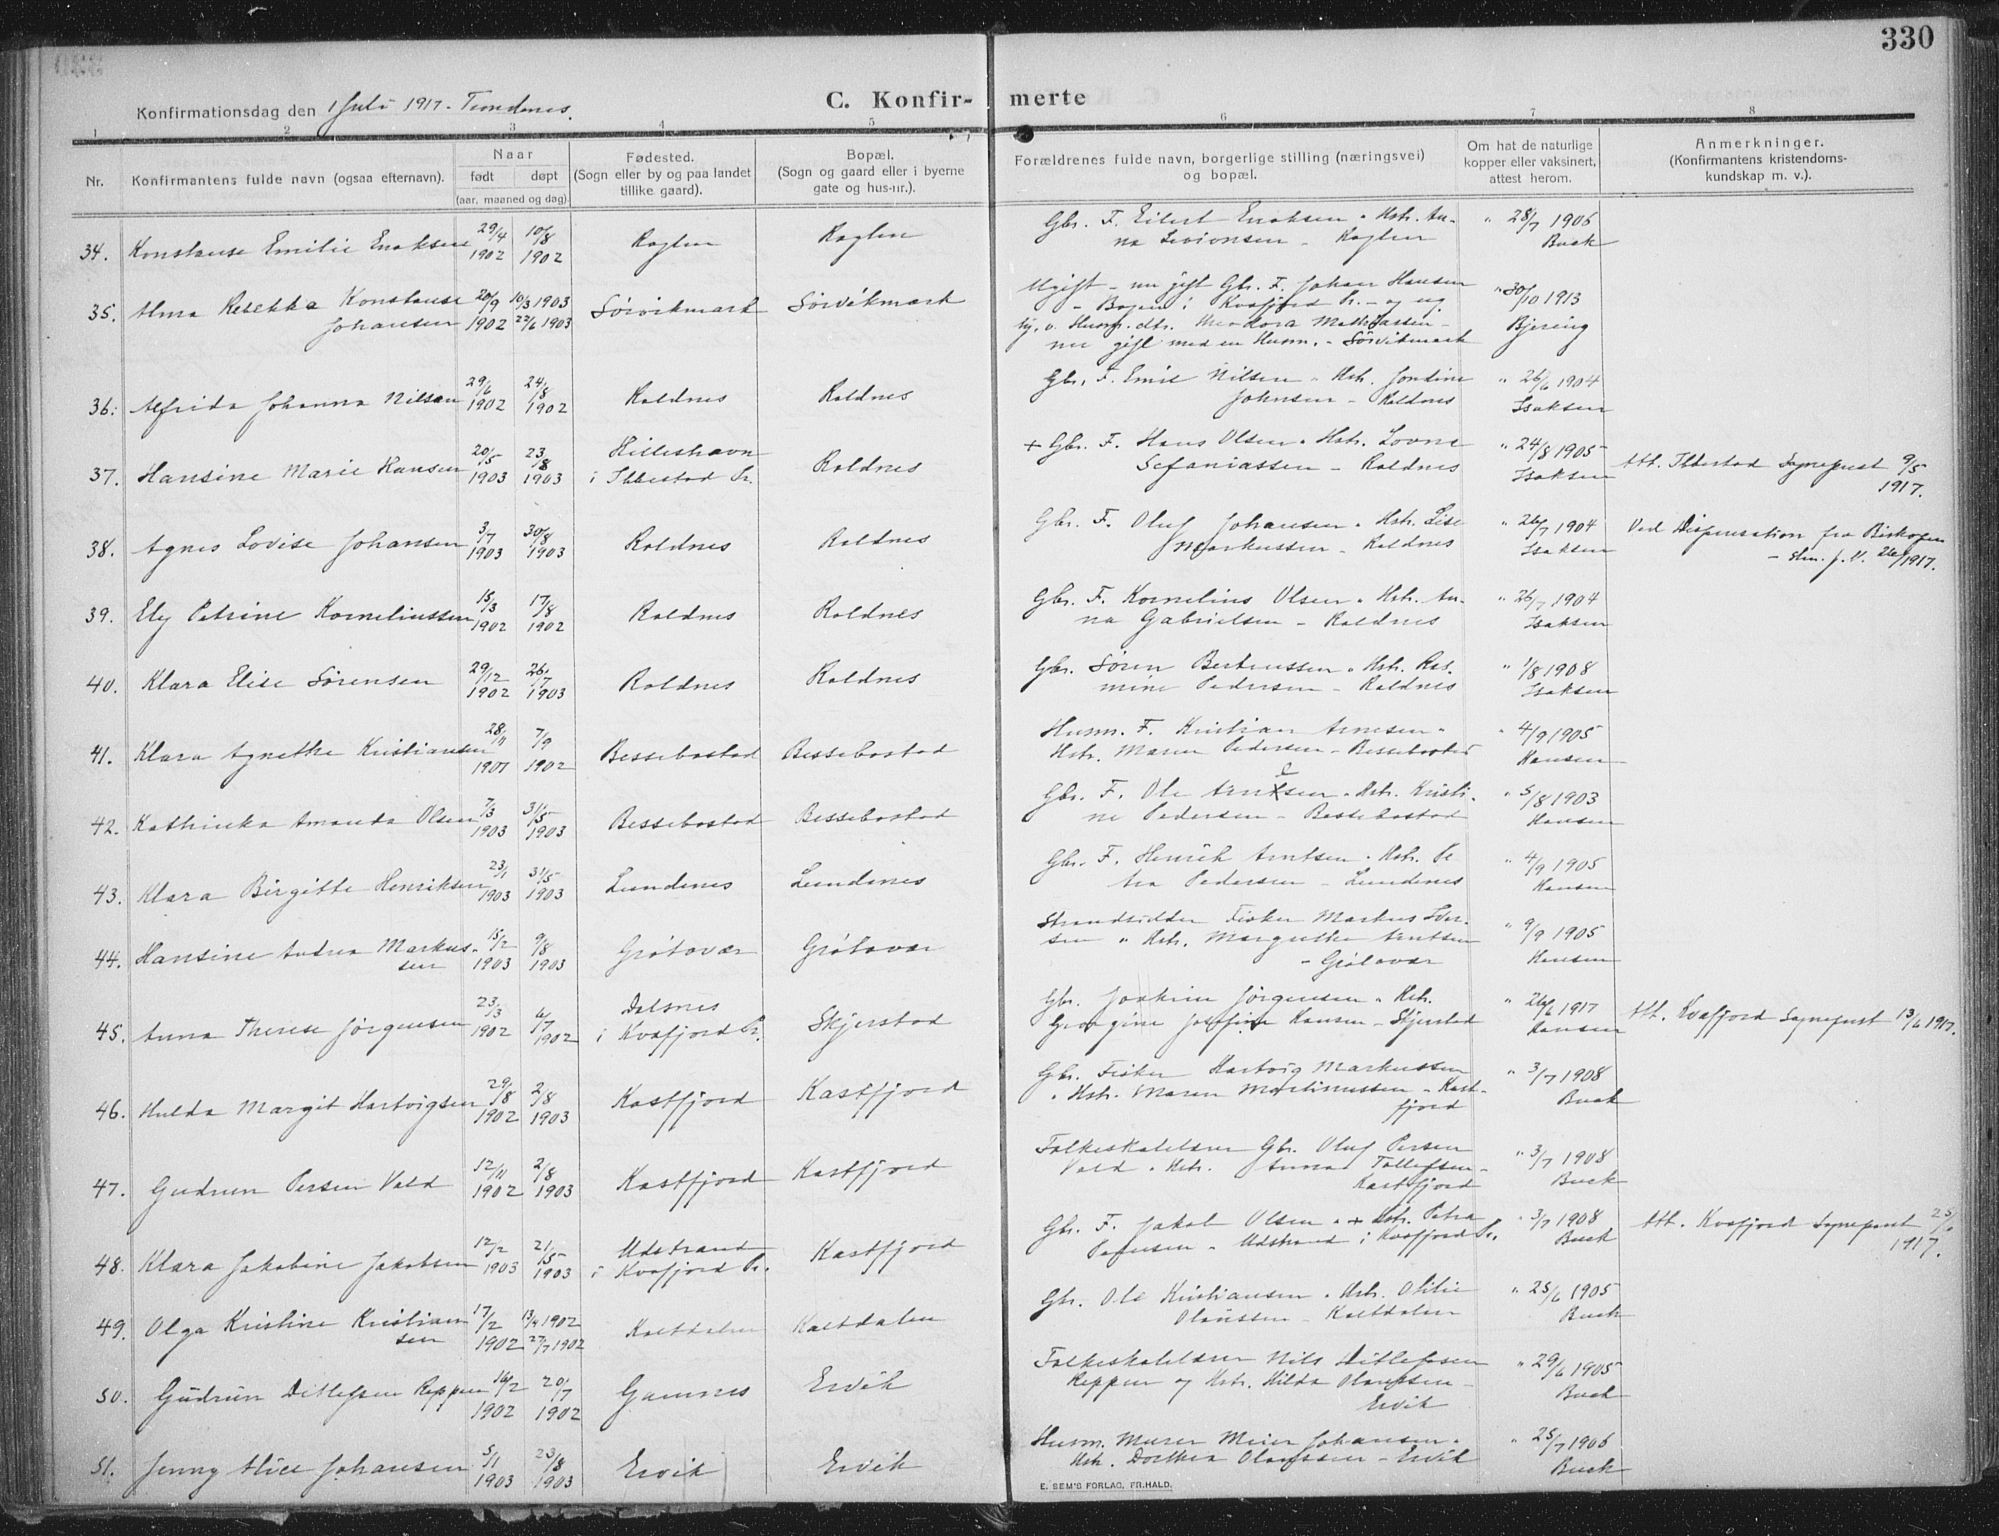 330
Konfirmationsdag den 1 Juli 1917. Trondenes.
C. Konfirmerte
1 2 3 4 5 6 7 8
Nr.
Konfirmantens fulde navn (ogsaa efternavn).
Naar
født døpt
(aar, maaned og dag).
Fødested.
(Sogn eller by og paa landet
tillike gaard).
Bopæl.
(Sogn og gaard eller i byerne
gate og hus-nr.).
Forældrenes fulde navn, borgerlige stilling (næringsvei)
og bopæl.
Om hat de naturlige
kopper eller vaksinert,
attest herom.
Anmerkninger.
(Konfirmantens kristendoms-
kundskap m. v.).
34. Konstanse Emilie Enoksen 29/4 1902 10/8 1902 Roglen Roglen Gbr. F. Eilert Enoksen " Hstr. An-
na Sevionsen - Roglen " 28/7 1906 Buck
35. Alma Rebekka Konstanse
Johansen 20/9 1902 10/3 1903 22/6 1903 Sørvikmark Sørvikmark Ugift - nu gift Gbr. F. Johan Hansen
- Bogen i Kvæfjord Pr. - og ug
hj. v. Husm. dtr. Theodora Mathiassen -
nu gift med en Husm. - Sørvikmark " 30/10 1913 Bjering
36. Alfrida Johanna Nilsen 29/6 1902 24/8 1902 Roldnes Roldnes Gbr. F. Emil Nilsen " Hstr. Jondine
Johnsen - Roldnes " 26/6 1904 Isaksen
37. Hansine Marie Hansen 20/5 1903 23/8 1903 Hilleshavn
i Ibbestad Pr. Roldnes + Gbr. F. Hans Olsen " Hstr. Lovne
Sefaniassen - Roldnes " 24/8 1905 Isaksen Att. Ibbestad Sogneprest 9/5
1917.
38. Agnes Lovise Johansen 3/7 1903 30/8 1903 Roldnes Roldnes Gbr. F. Oluf Johansen " Hstr. Lise
Markussen - Roldnes " 26/7 1904 Isaksen Ved Dispensation fra Biskopen
39. Ely Petrine Korneliussen 15/3 1902 17/8 1902 Roldnes Roldnes Gbr. F. Kornelius Olsen " Hstr. An-
na Gabrielsen - Roldnes " 26/7 1904 Isaksen
40. Klara Elise Sørensen 29/12 1902 26/7 1903 Roldnes Roldnes Gbr. Søren Berteussen " Hstr. Ras-
mine Pedersen - Roldnes " 1/8 1908 Isaksen
41. Klara Agnethe Kristiansen 28/11 1901 7/9 1902 Bessebostad Bessebostad Husm. F. Kristian Arnesen "
Hstr. Maren Pedersen - Bessebostad " 4/9 1905 Hansen
42. Kathinka Amanda Olsen 7/3 1903 31/5 1903 Bessebostad Bessebostad Gbr. F. Ole Arnesen " Hstr. Kristi-
ne Pedersen - Bessebostad " 5/8 1903 Hansen
43. Klara Birgitte Henriksen 23/1 1903 31/5 1903 Lundenes Lundenes Gbr. F. Henrik Arntsen " Hstr. Pe
tra Pedersen - Lundenes " 4/9 1905 Hansen
44. Hansine Andrea Markus-
sen 15/2 1903 9/8 1903 Grøtavær Grøtavær Strandsidder Fisker Markus Iver-
sen " Hstr. Margrethe Arntsen
- Grøtavær " 9/9 1905 Hansen
45. Anna Therese Jørgensen 23/3 1902 6/7 1902 Dalsnes
i Kvæfjord Pr. Skjerstad Gbr. Joakim Jørgensen " Hstr.
Georgine Josefine Hansen - Skjerstad " 26/6 1917 Hansen Att. Kvæfjord Sogneprest 13/6 1917.
46. Hulda Margit Hartvigsen 29/8 1902 2/8 1903 Kastfjord Kastfjord Gbr. Fisker Hartvig Markussen
" Hstr. Maren Martinussen - Kast-
fjord " 3/7 1908 Buck
47. Gudrun Persen Vold 12/11 1902 2/8 1903 Kastfjord Kastfjord Folkeskolelærer Gbr. Oluf Persen
Vold " Hstr. Anna Tollefsen -
Kastfjord " 3/7 1908 Buck
48. Klara Jakobine Jakobsen 12/2 1903 21/5 1903 Udstrand
i Kvæfjord Pr. Kastfjord Gbr. F. Jakob Olsen " + Hstr. Petra
Pedersen - Udstrand i Kvæfjord Pr. " 3/7 1908 Buck Att. Kvæfjord Sogneprest 25/6
1917.
49. Olga Kristine Kristian
sen 17/2 1902 13/4 1902 27/7 1902 Kaldalen Kaldalen Gbr. Ole Kristiansen " Hstr. Otilie
Olaussen - Kaldalen " 25/6 1905 Buck
50. Gudrun Ditlefsen Reppen 16/2 1902 20/7 1902 Gamnes Ervik Folkeskolelærer Nils Ditlefsen
Reppen og Hstr. Hilda Olaussen -
Ervik " 29/6 1905 Buck
51. Jenny Alice Johansen 5/1 1903 23/8 1903 Ervik Ervik Husm. Murer Meier Johansen "
Hstr. Dorthea Olaussen - Ervik " 25/7 1906 Buck
E. SEM'S FORLAG, FR.HALD.